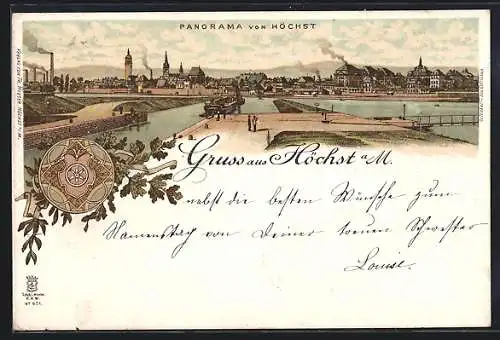 PANORAMA VON HÖCHST
Gruss aus Höchst a/M.
nebst die besten Wünsche zum
Namenstag von Deiner treuen Schwester
Louise.